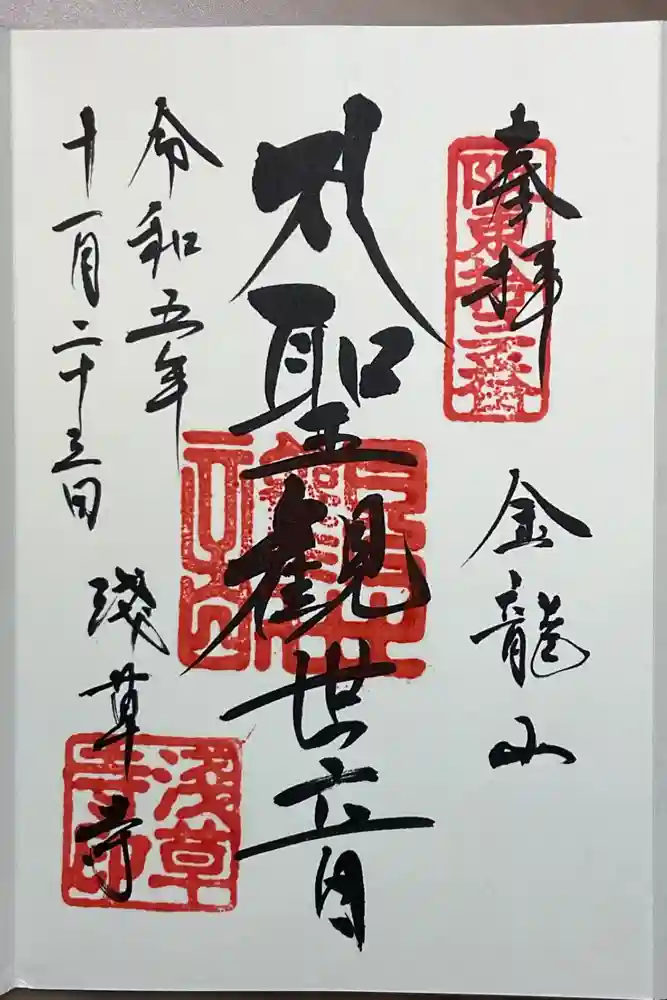 奉拝
坂東拾三番
金龍山
聖観世音
令和五年
十一月二十三日
浅草寺
浅草寺印